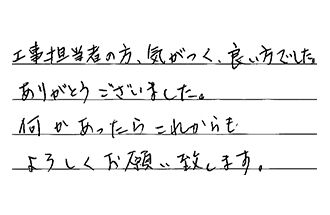 工事担当者の方、気がつく、良い方でした。
ありがとうございました。
何かあったらこれからも
よろしくお願い致します。